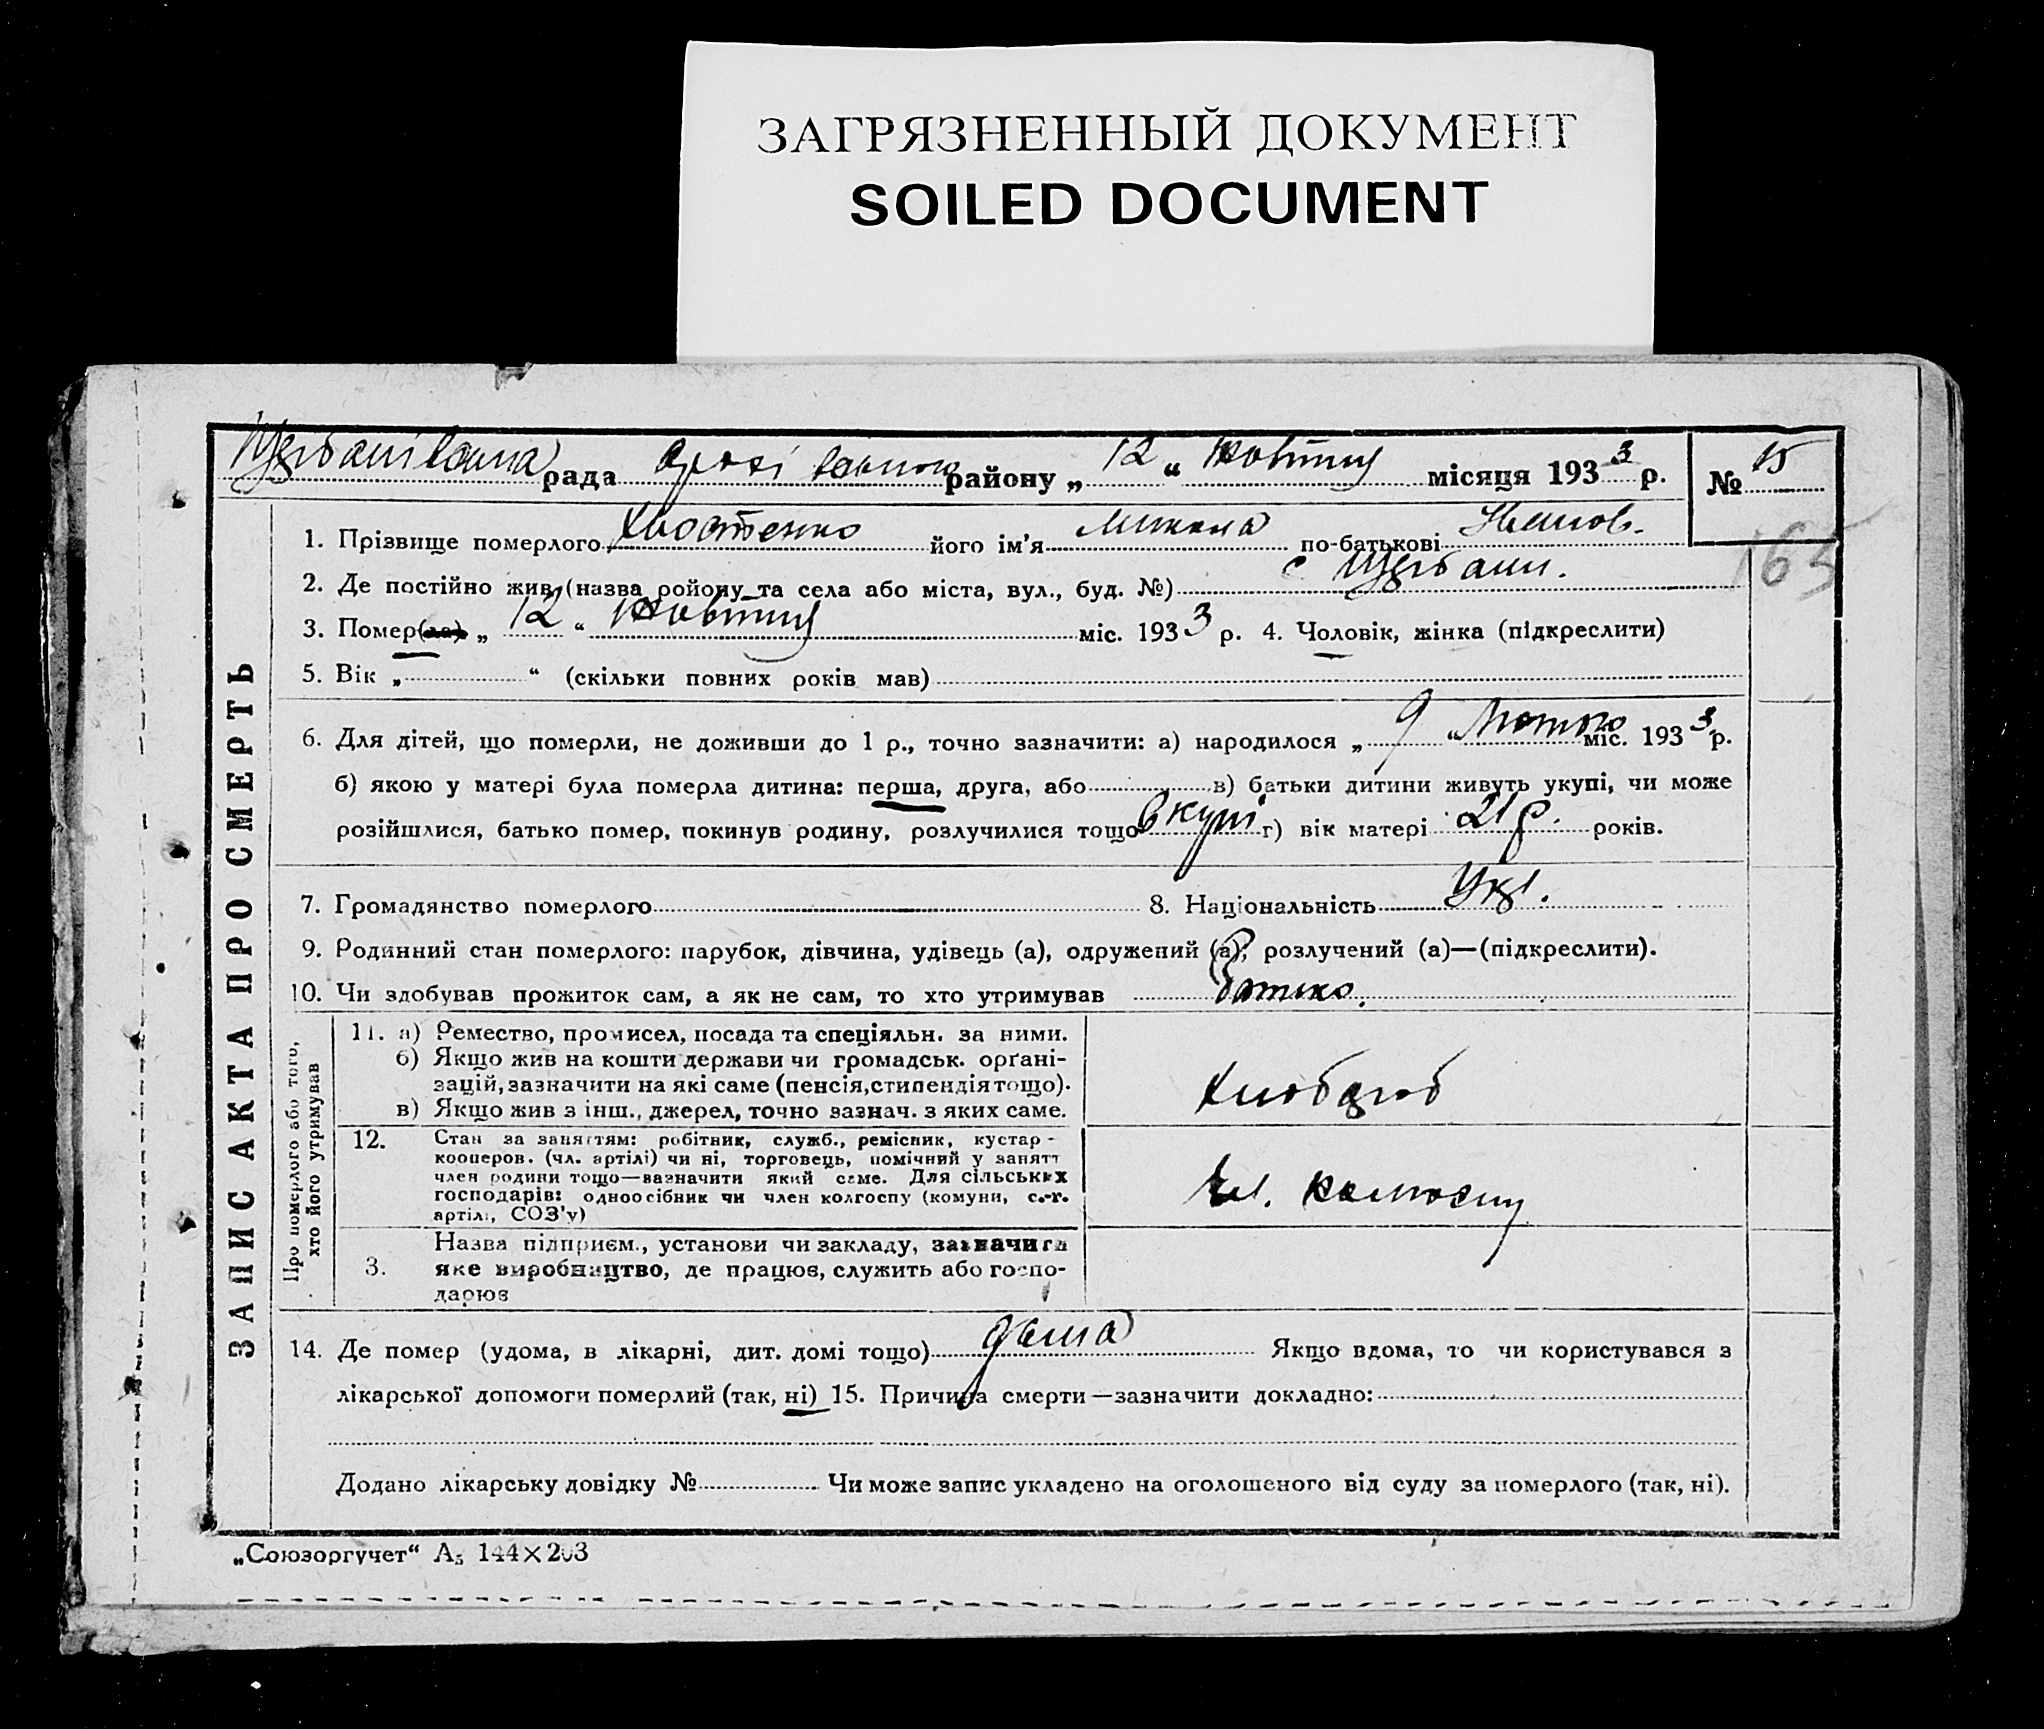 ЗАГРЯЗНЕННЫЙ ДОКУМЕНТ
SOILED DOCUMENT
Щербанівська рада району „ 12 “ жовтня місяця 1933 р. № 15
1. Прізвище померлого Хвостенко його ім’я Микола по-батькові Іванов.
165
2. Де постійно жив (назва ройону та села або міста, вул., буд. №) с Щербани.
3. Помер(ла) „ 12 “ жовтня міс. 1933 р. 4. Чоловік, жінка (підкреслити)
5. Вік „ “ (скільки повних років мав)
6. Для дітей, що померли, не доживши до 1 р., точно зазначити: а) народилося „ 9 “ Лютого міс. 1933 р.
б) якою у матері була померла дитина: перша, друга, або в) батьки дитини живуть укупі, чи може
розійшлися, батько помер, покинув родину, розлучилися тощо вкупі г) вік матері 21 р. років.
7. Громадянство померлого 8. Національність Укр.
9. Родинний стан померлого: парубок, дівчина, удівець (а), одружений (а), розлучений (а)—(підкреслити).
10. Чи здобував прожиток сам, а як не сам, то хто утримував батько.
ЗАПИС АКТА ПРО СМЕРТЬ
Про померлого або того,
хто його утримував
11. а) Ремество, промисел, посада та спеціяльн. за ними.
б) Якщо жив на кошти держави чи громадськ. орґані-
зацій, зазначити на які саме (пенсія, стипендія тощо).
в) Якщо жив з інш., джерел, точно зазнач. з яких саме.
Хлобороб
12. Стан за заняттям: робітник, служб., ремісник, кустар -
кооперов. (чл. артілі) чи ні, торговець, помічний у занятт
член родини тощо—вазначити який саме. Для сільських
господарів: одноосібник чи член колгоспу (комуни, с.-г.
артілі, СОЗ’у)
Чл. колгоспу
3. Назва підприєм., установи чи закладу, зазначити
яке виробництво, де працює, служить або госпо-
дарює
14. Де помер (удома, в лікарні, дит. домі тощо) дома Якщо вдома, то чи користувався з
лікарської допомоги померлий (так, ні) 15. Причина смерти—зазначити докладно:
Додано лікарську довідку № Чи може запис укладено на оголошеного від суду за померлого (так, ні).
„Союзоргучет“ А5 144×203